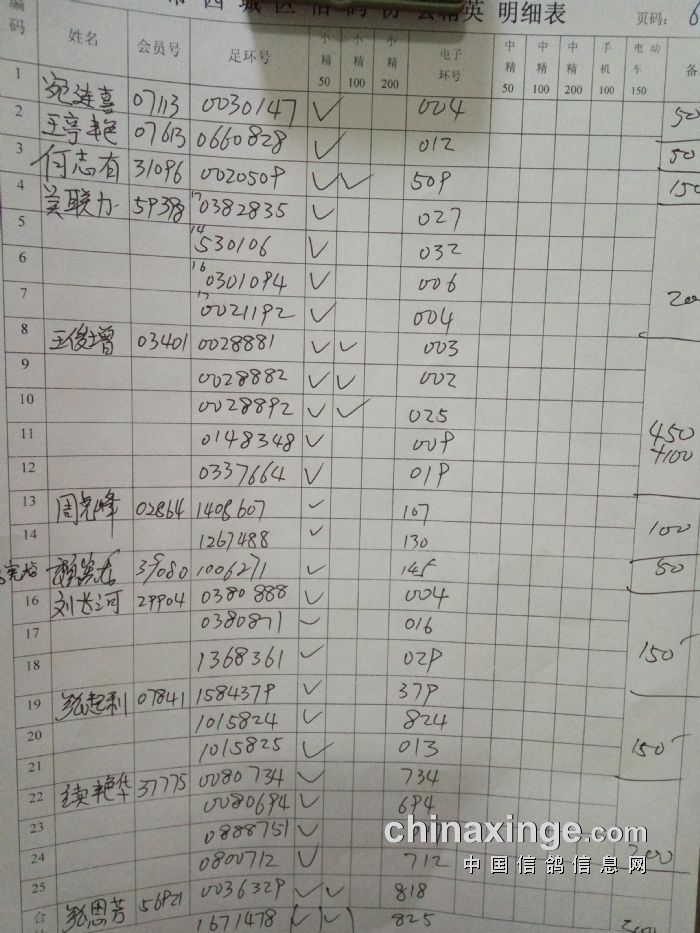 西城区信鸽协会精英 明细表 页码: 6
编码 姓名 会员号 足环号 小精50 小精100 小精200 电子环号 中精50 中精100 中精200 手机100 电动车150 备
1 宛连喜 07113 0030147 ✓ 004 50
2 王亭艳 07613 0660828 ✓ 012 50
3 何志有 31096 0020509 ✓ ✓ 509 150
4 吴联力 59398 17 0382835 ✓ 027
5 14 530106 ✓ 032
6 16 0301094 ✓ 006
7 17 0021192 ✓ 004 200
8 王俊增 03401 0028881 ✓ ✓ 003
9 0028882 ✓ ✓ 002
10 0028892 ✓ ✓ 025
11 0148348 ✓ 009 450
12 0337664 ✓ 019 +100
13 周尧峰 02864 1408607 ✓ 107
14 1267488 ✓ 130 100
39080 1006271 ✓ 145 50
16 刘长河 29904 0380888 ✓ 004
17 0380871 ✓ 016
18 1368361 ✓ 029 150
19 张起利 07841 1584379 ✓ 379
20 1015824 ✓ 824
21 1015825 ✓ 013 150
22 续艳华 37775 0080734 ✓ 734
0080694 ✓ 694
23 0888751 ✓
24 0800712 ✓ 712 200
25 0036329 ✓ ✓ 818
合 张恩芳 56921 1671478 ✓ ✓ 825
chinaxinge.com
中国信鸽信息网